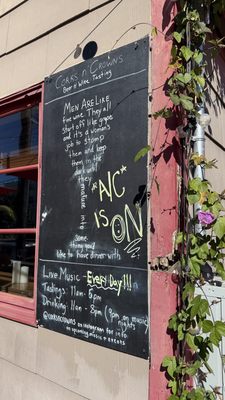 Corks n Crowns
Beer & Wine Tasting
Men are like
fine wine. They all
start off like grapes
and it's a woman's
job to stomp
them and keep
them in the
dark until
they
mature into
something you'd
like to have dinner with
*A/C*
is
ON!
Live Music - Every Day!!!
Tastings: 11am - 6pm
Drinking: 11am - 8pm (9pm on music nights)
@corksncrowns on instagram for info
on upcoming music & events